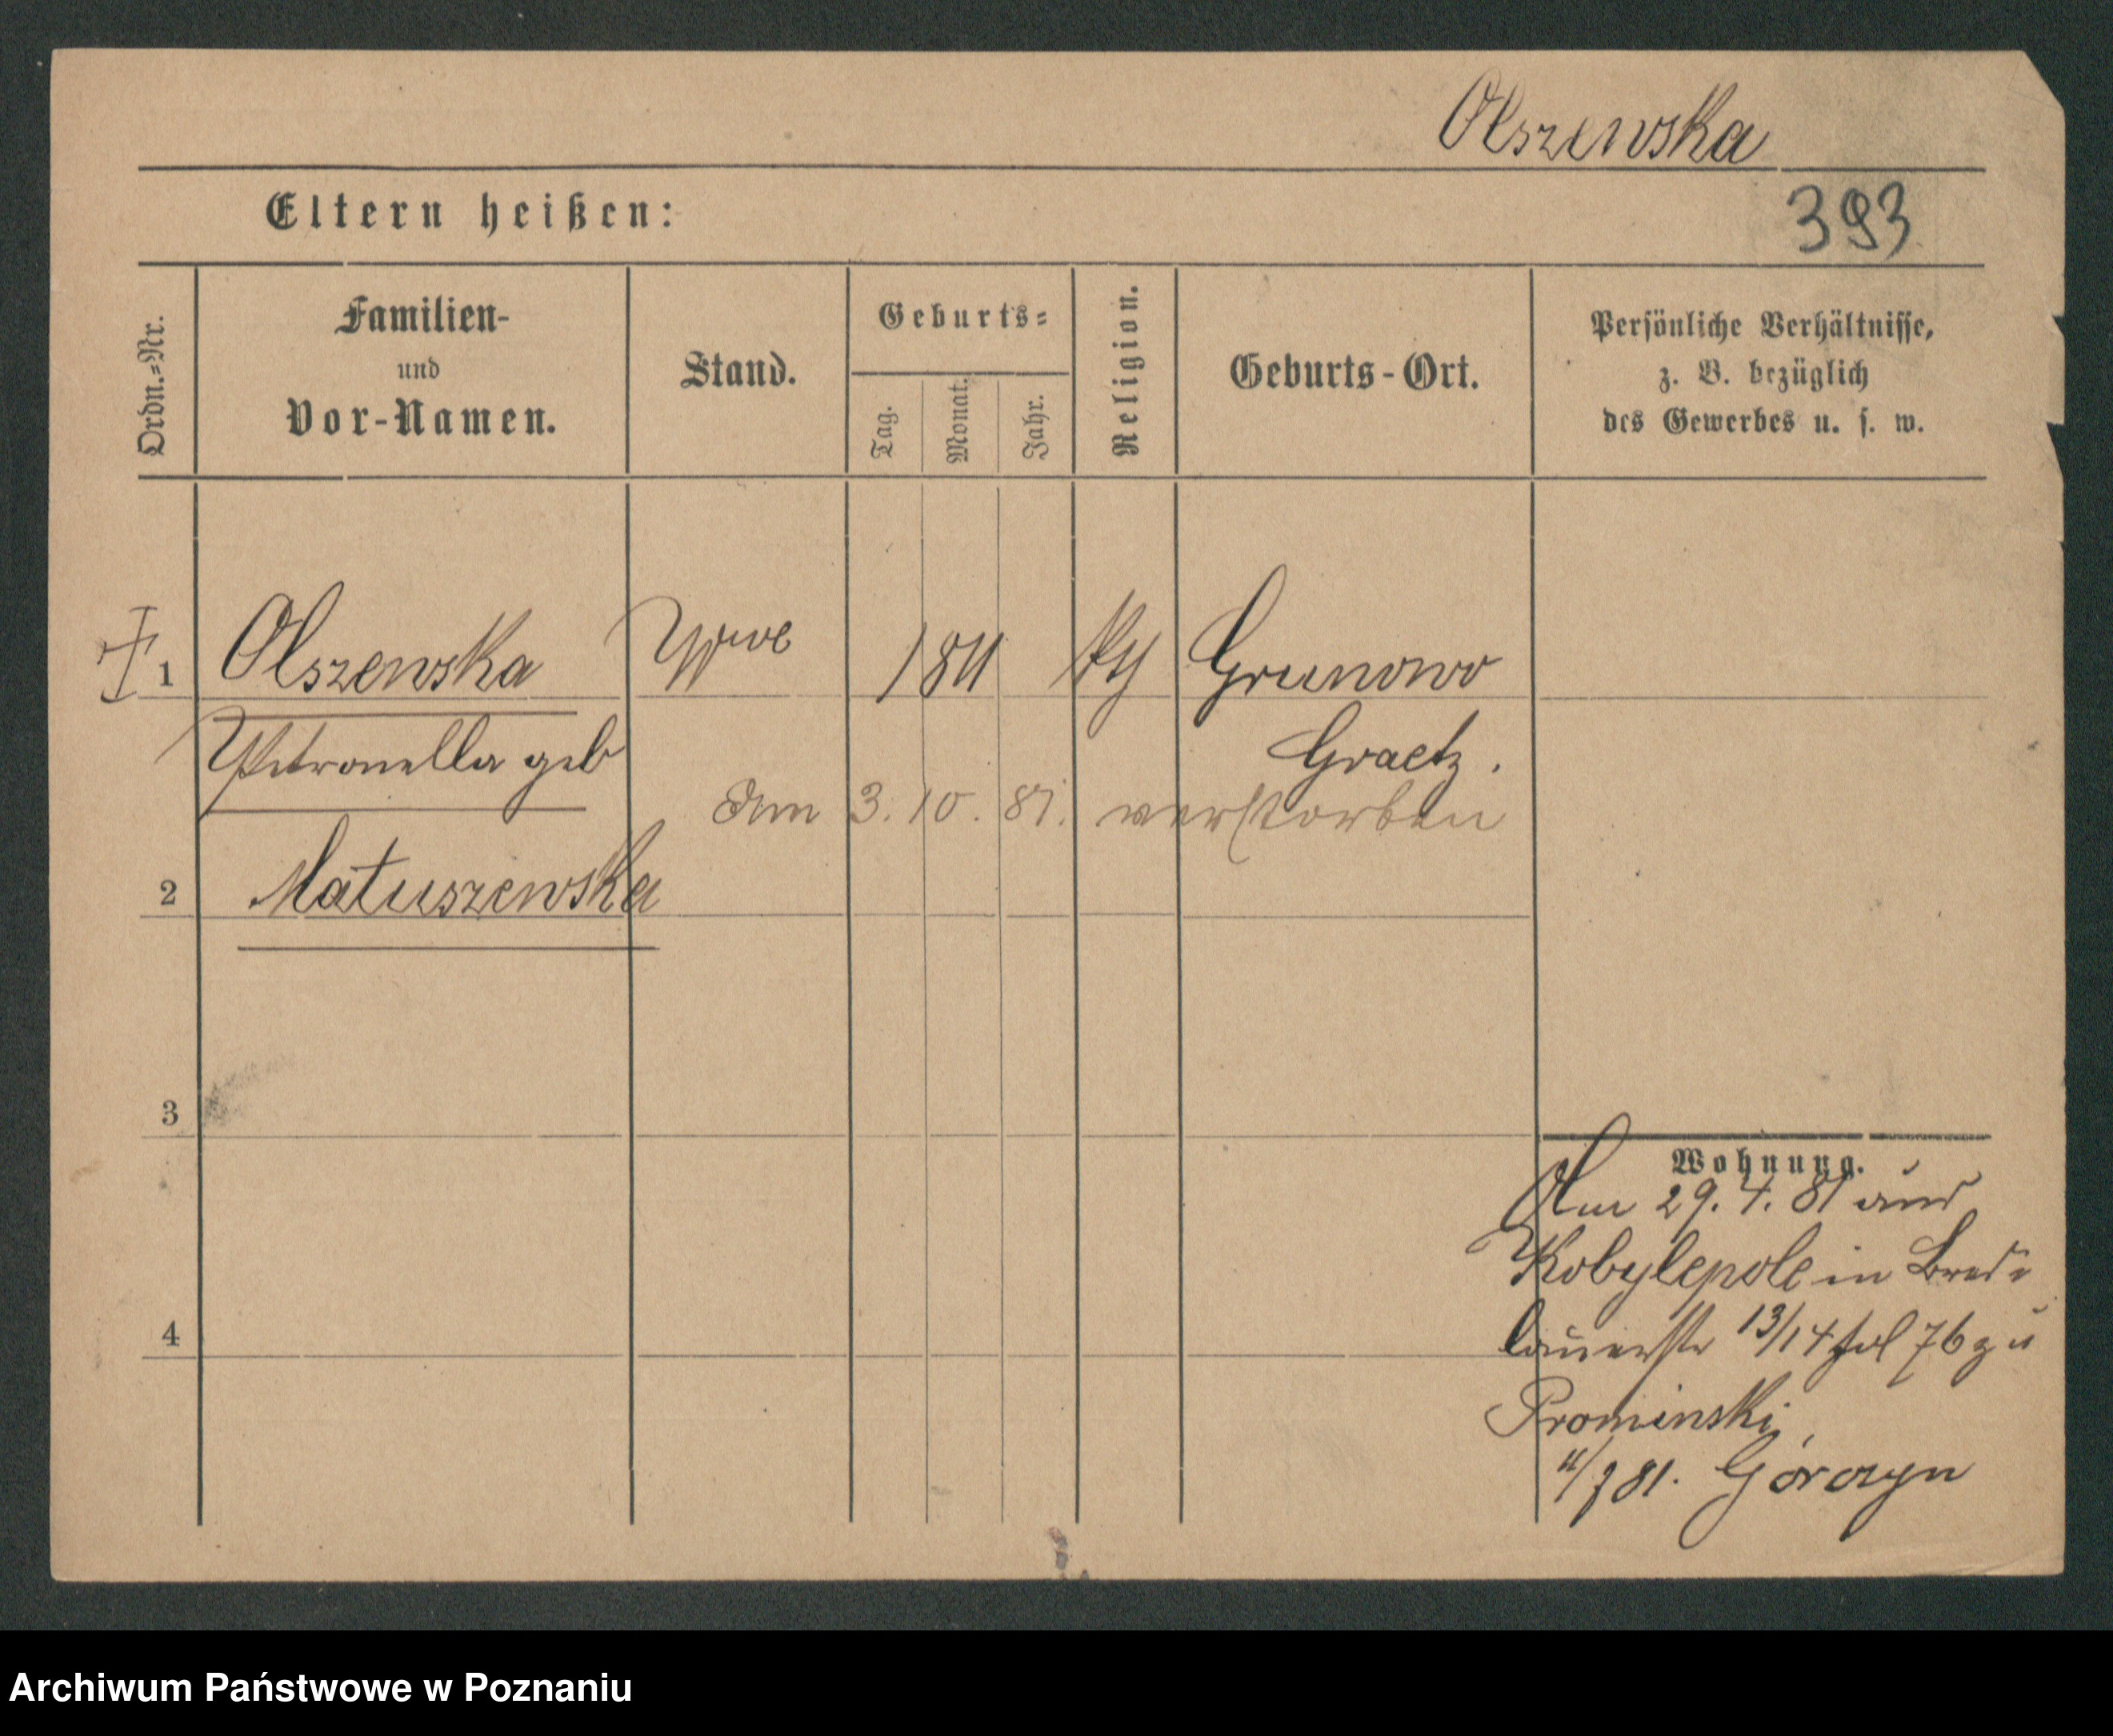 Olszewska
Eltern heißen:
393
Ordn.-Nr.
Familien-
und
Vor-Namen.
Stand.
Geburts-
Tag.
Monat.
Jahr.
Religion.
Geburts-Ort.
Persönliche Verhältnisse,
z. B. bezüglich
des Gewerbes u. s. w.
1 Olszewska Wwe 1811 Grunowo
Petronella geb Graetz.
Am 3. 10. 81. verstorben
2 Matuszewska
3
Wohnung.
Am 29. 4. 81 aus
Kobylepole in Bres-
lauerstr 13/14 fol 76 zu
4
Prominski
81. Górczyn
Archiwum Państwowe w Poznaniu